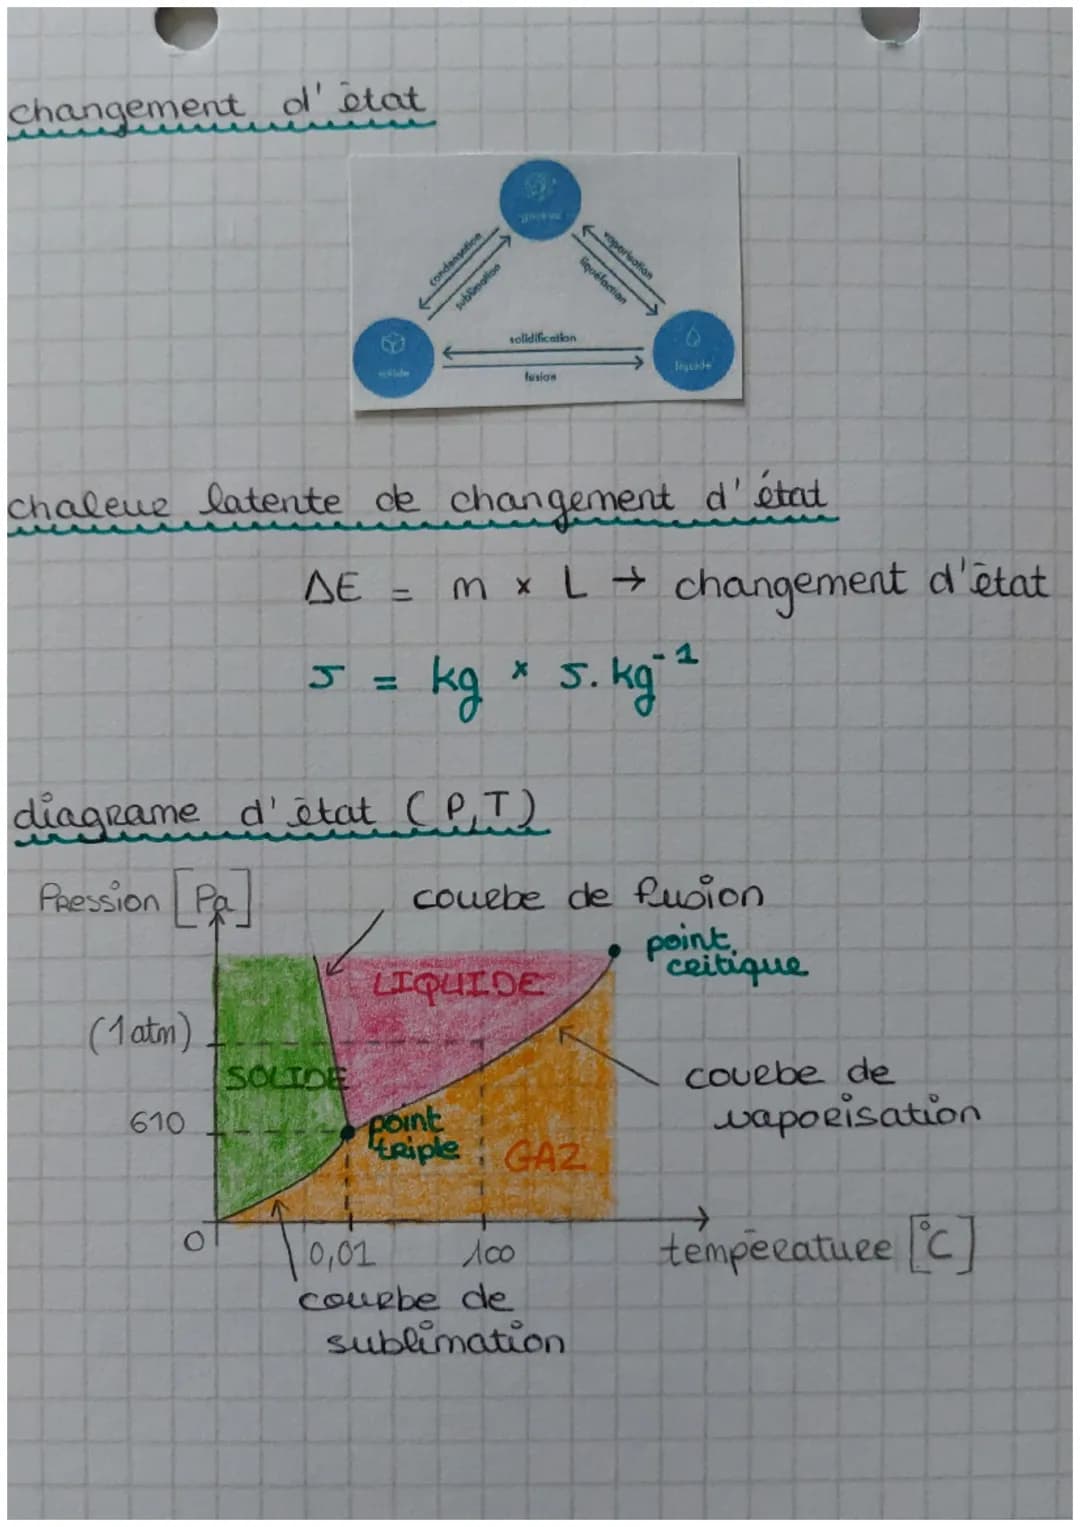 changement d'état
gazeux
condensation
sublimation
vaporisation
liquéfaction
solidification
fusion
solide
liquide
chaleur latente de changement d'état
ΔE = m × L → changement d'état
J = kg × J.kg⁻¹
diagrame d'état (P,T)
Pression [Pa]
courbe de fusion
point critique
LIQUIDE
(1atm)
SOLIDE
courbe de
vaporisation
610
point
triple
GAZ
0
0,01
100
température [°C]
courbe de
sublimation